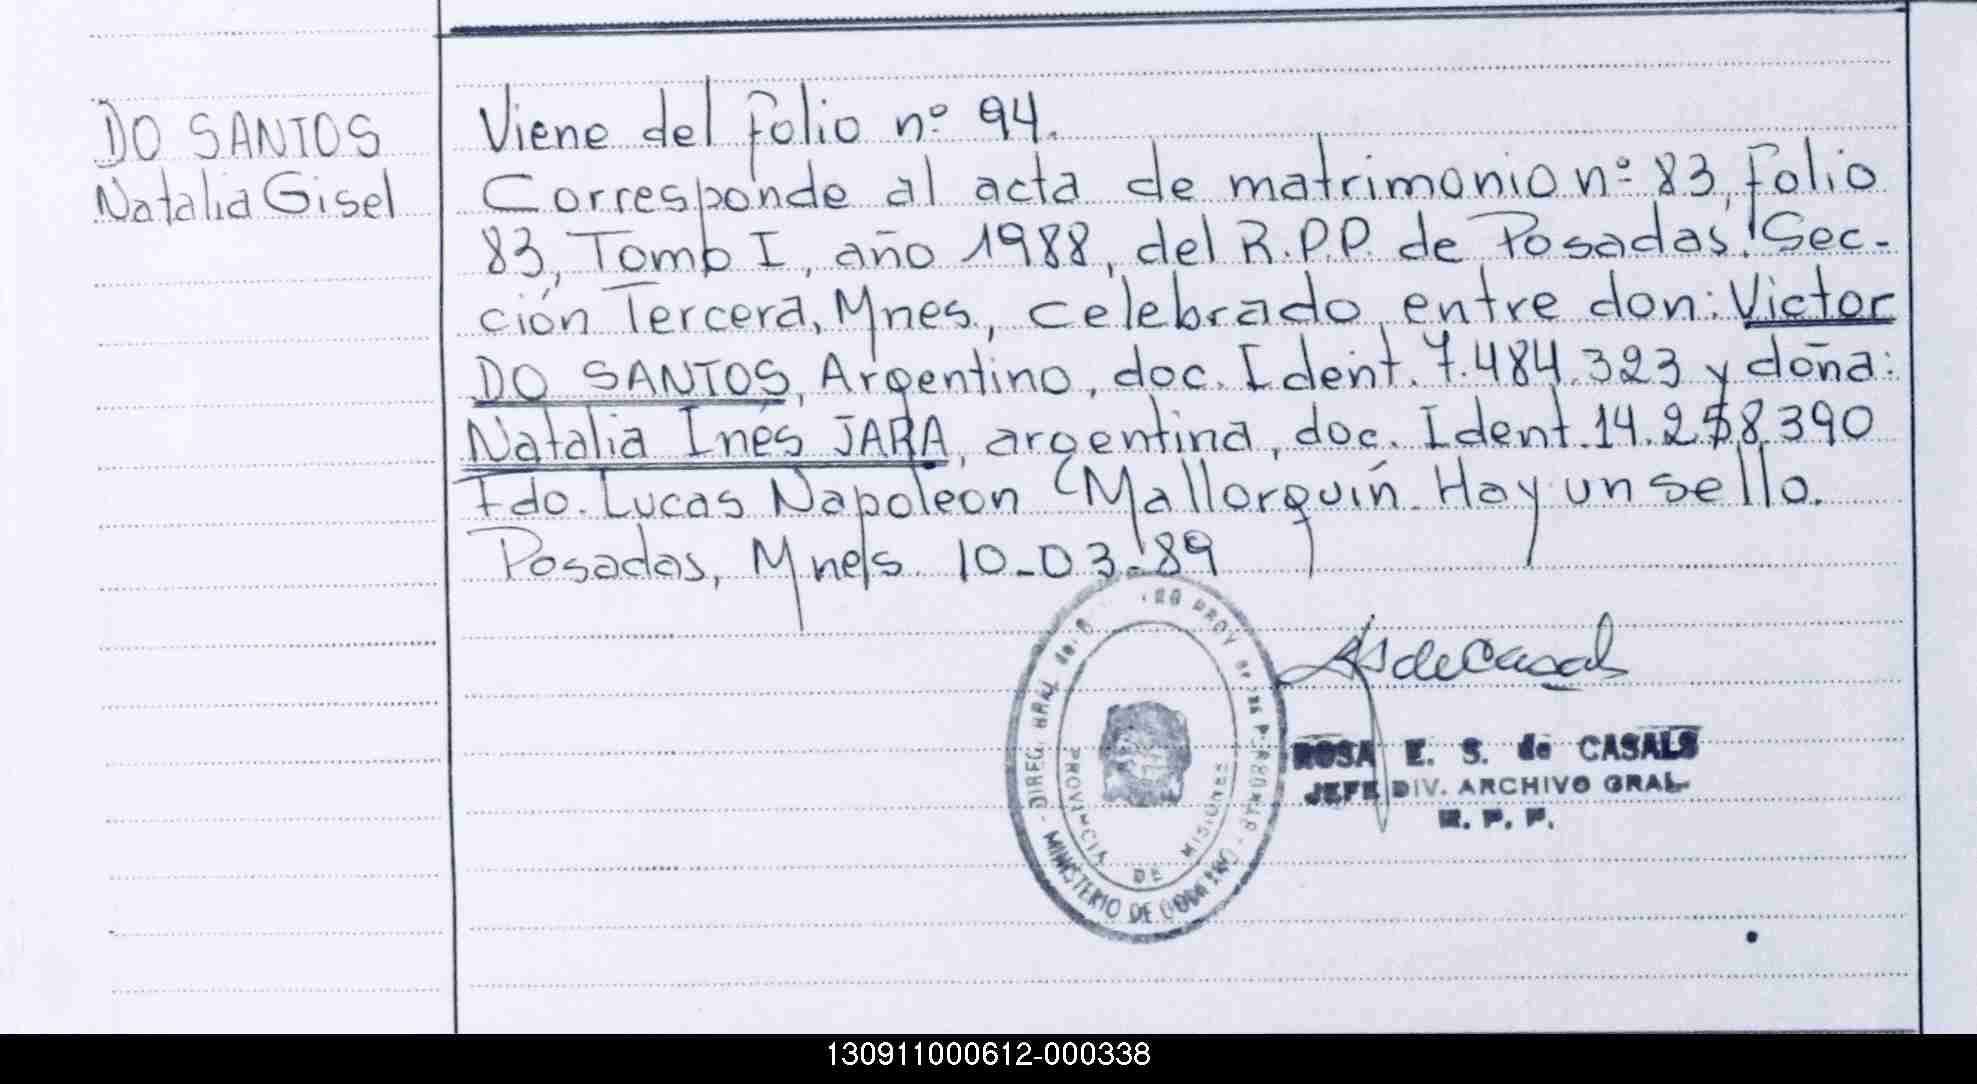 DO SANTOS
Natalia Gisel
Viene del folio nº 94.
Corresponde al acta de matrimonio nº 83, Folio
83, Tomo I, año 1988, del R.P.P. de Posadas. Sec-
ción Tercera, Mnes., celebrado entre don: Victor
DO SANTOS, Argentino, doc. Ident. 7.484.323 y doña:
Natalia Inés JARA, argentina, doc. Ident. 14.258.390
Fdo. Lucas Napoleon Mallorquín. Hay un sello.
Posadas, Mnes. 10-03-89
DIREC. GRAL.
MINISTERIO DE GOBIERNO
PROVINCIA DE MISIONES
ROSA E. S. de CASALS
JEFE DIV. ARCHIVO GRAL.
R. P. P.
130911000612-000338